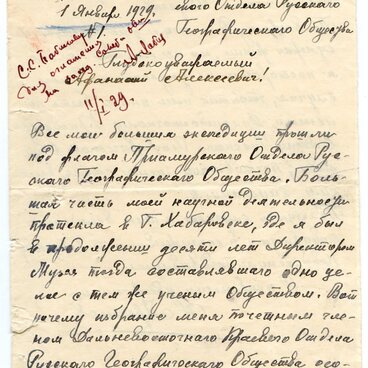 1 Январ 1929.
№ 1.
ского Отдела Русского
Географического Общества
С.С. Бабикову
для оглашения
на засед. Совета
11/I 29.
Глубокоуважаемый
Афанасий Алексеевич!
Все мои большия экспедиции прошли
под флагом Приамурского Отдела Рус-
ского Географического Общества. Боль-
шая часть моей научной деятельности
протекла в Г. Хабаровске, где я был
в продолжении десяти лет Директором
Музея тогда составлявшаго одно це-
лое с тем же ученым Обществом. Вот
почему избрание меня почетным чле-
ном Дальневосточного Краевого Отдела
Русского Географического Общества осо-